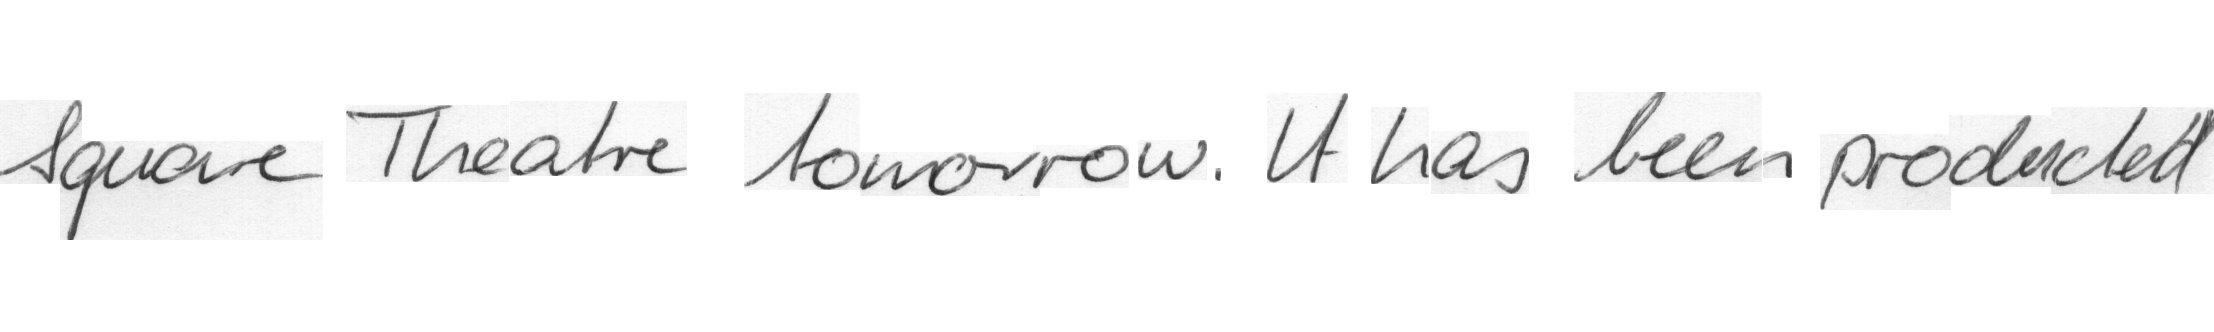 Square Theatre tomorrow. It has been producted